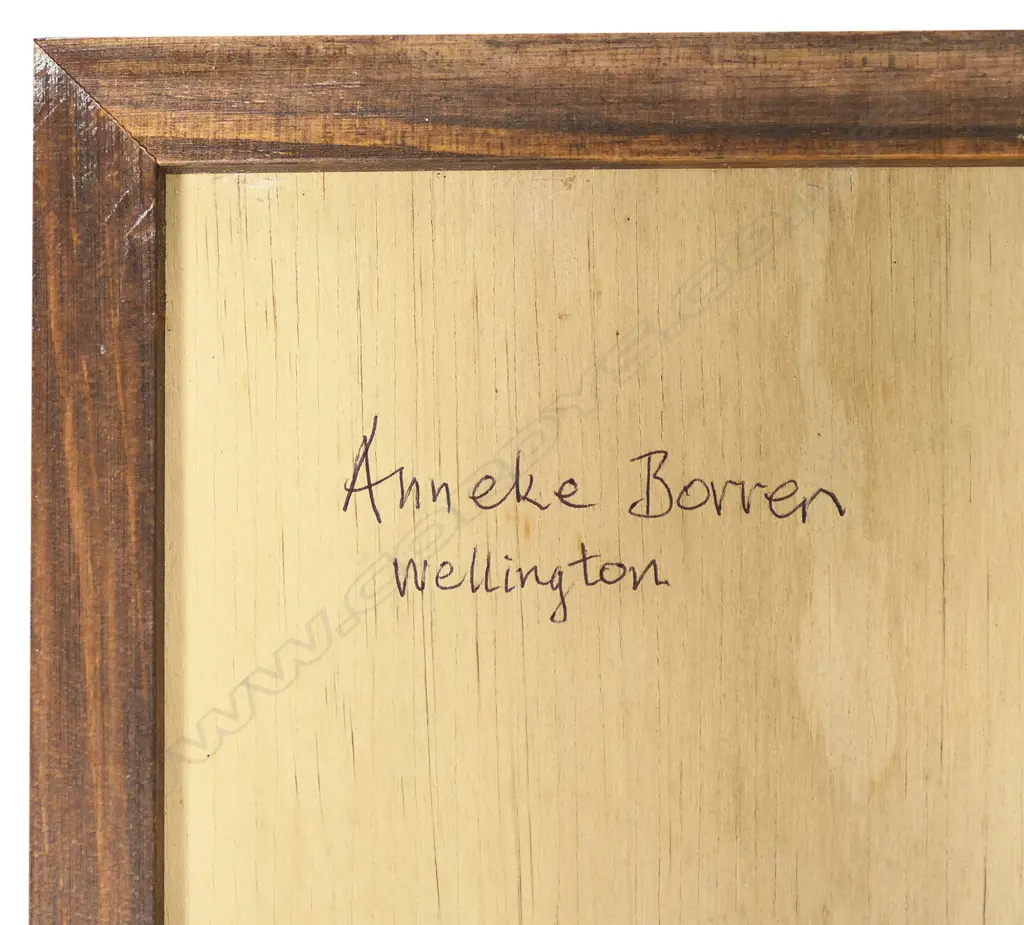 Anneke Borren
Wellington